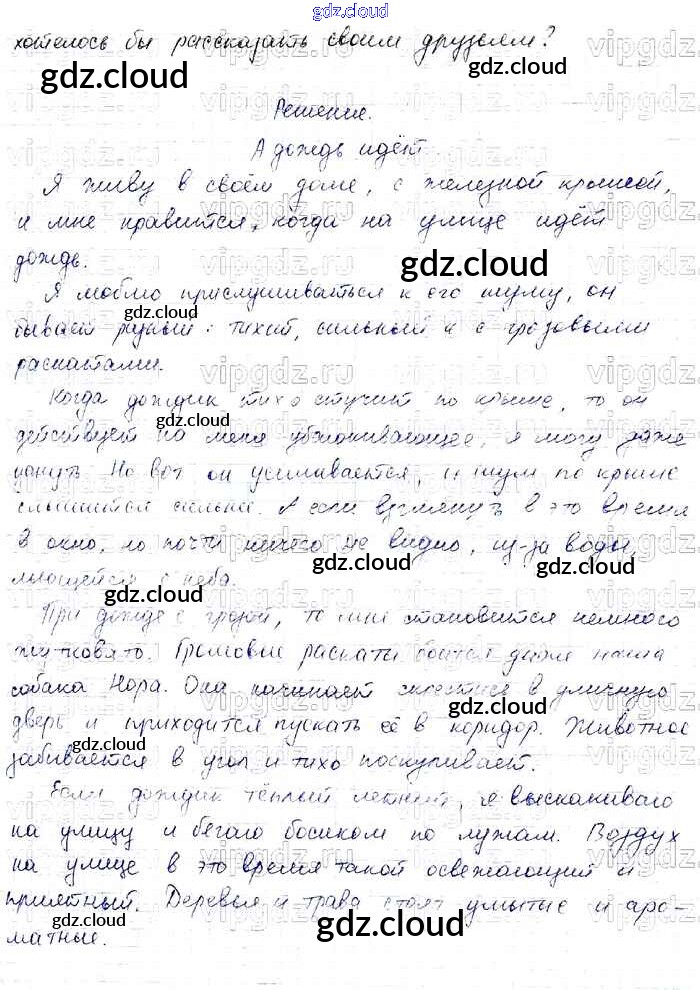 gdz.cloud
хотелось бы рассказать своим друзьям?
Решение.
А дождь идёт
Я живу в своём доме, с железной крышей,
и мне нравится, когда на улице идёт
дождь.
Я люблю прислушиваться к его шуму, он
бывает разный: тихий, сильный и с грозовыми
раскатами.
Когда дождик тихо стучит по крыше, то он
действует на меня убаюкивающее, я могу даже
уснуть. Но вот он усиливается, и шум по крыше
слышится сильней. А если взглянуть в это время
в окно, но почти ничего не видно, из-за воды,
льющейся с неба.
При дожде с грозой, то мне становится немного
жутковато. Громовые раскаты боится даже наша
собака Нора. Она начинает скрестись в уличную
дверь и приходится пускать её в коридор. Животное
забивается в угол и тихо поскуливает.
Если дождик тёплый летний, я выскакиваю
на улицу и бегаю босиком по лужам. Воздух
на улице в это время такой освежающий и
приятный. Деревья и трава стоят умытые и аро-
матные.